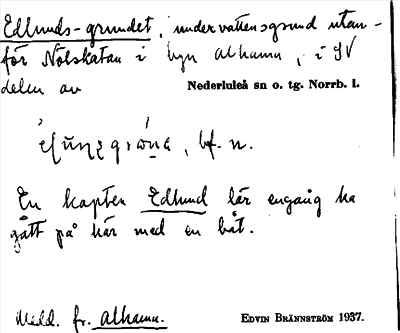 Edlunds-grundet, undervattensgrund utan-
för Nolskatan i byn Alhamn, i SV
delen av Nederluleå sn o. tg. Norrb. l.
, bf. n.
En kapten Edlund lär engång ha
gått på här med en båt.
Medd. fr. Alhamn. EDVIN BRÄNNSTRÖM 1937.